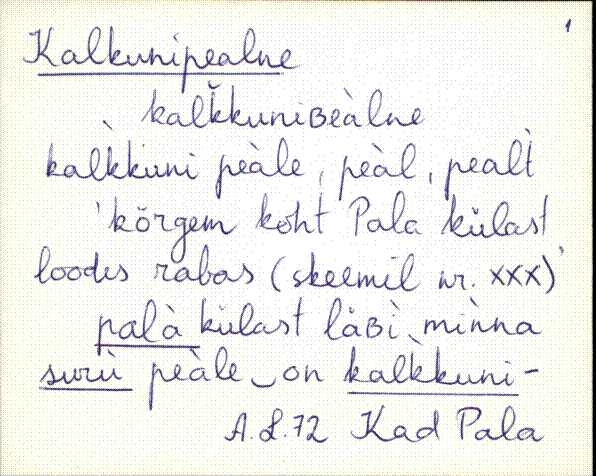 1
Kalkunipealne
kalˇkkuniʙeàlne
kalˋkkuni peàle, peàl, pealˋt
'kõrgem koht Pala külast
loodes rabas (skeemil nr. XXX)'
palà külast läʙì minna
surù peàle on kalˋkkuni-
A.L.72 Kad Pala